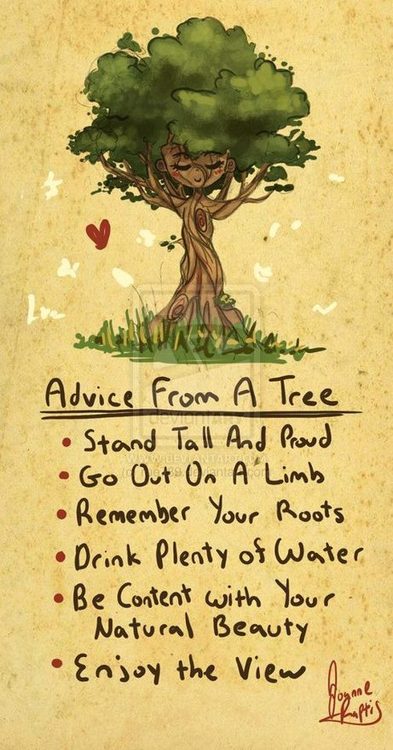 Love
Advice From A Tree
• Stand Tall And Proud
• Go Out On A Limb
• Remember Your Roots
• Drink Plenty of Water
• Be Content with Your
Natural Beauty
• Enjoy the View
Joanne
Kaptis